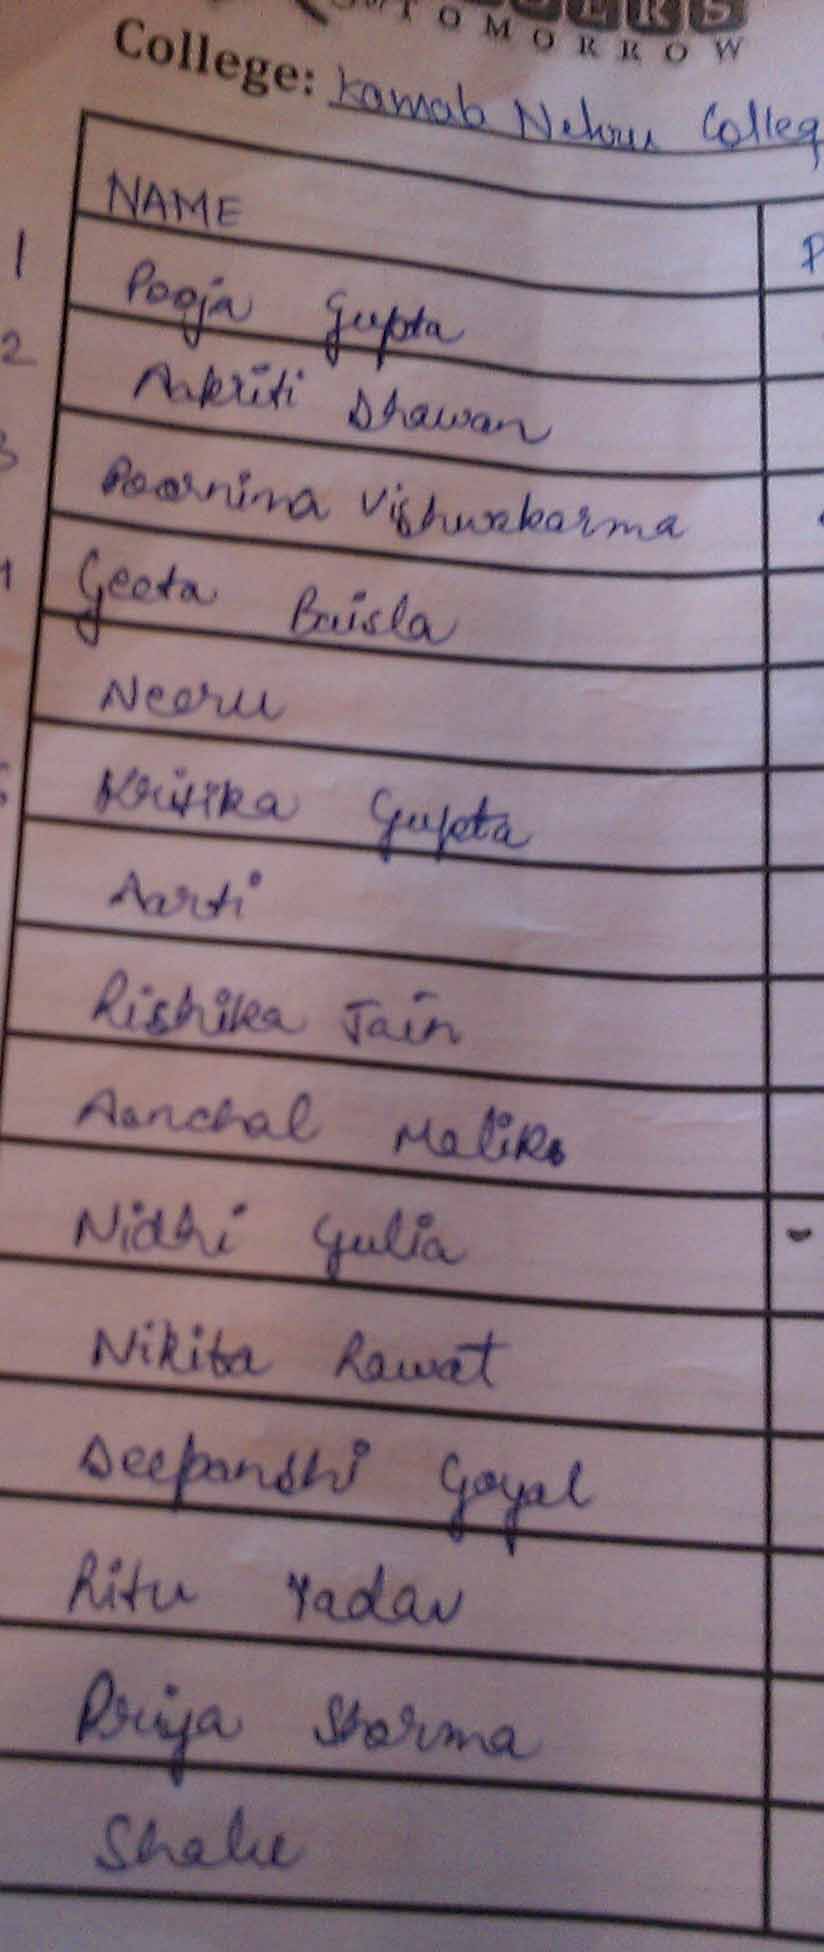 TOMORROW
College: Kamala Nehru Colleg
NAME P
1 Pooja Gupta
2 Aakriti Dhawan
3 Poornima Vishwakarma
4 Geeta Baisla
Neeru
5 Kritika Gupta
Aarti
Rishika Jain
Aanchal Malik
Nidhi Gulia
Nikita Rawat
Deepanshi Goyal
Ritu Yadav
Priya Sharma